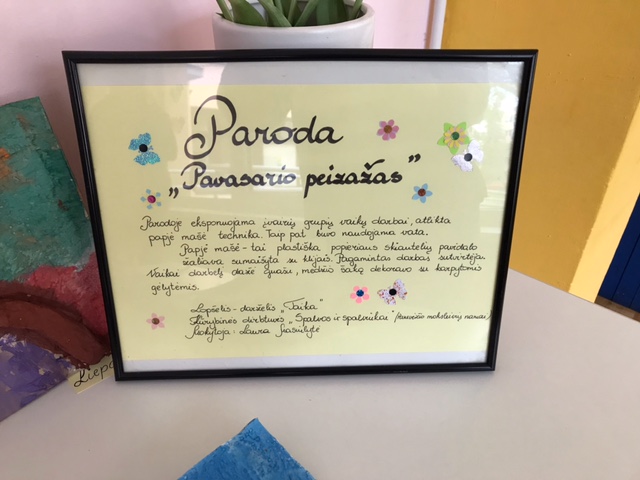 Paroda
„Pavasario peizažas”
Parodoje eksponuojama įvairių grupių vaikų darbai, atlikta
papjė mašė technika. Taip pat buvo naudojama vata.
Papjė mašė - tai plastiška popieriaus skiautelių pavidalo
žaliava sumaišyta su klijais. Pagamintas darbas sutvirtėja.
Vaikai darbelį dažė guašu, medžio šaką dekoravo su karpytomis
gėlytėmis.
Lopšelis - darželis „Taika"
Kūrybinės dirbtuvės „Spalvos ir spalviukai" moksleivių namai)
Mokytoja: Laura
Liepa